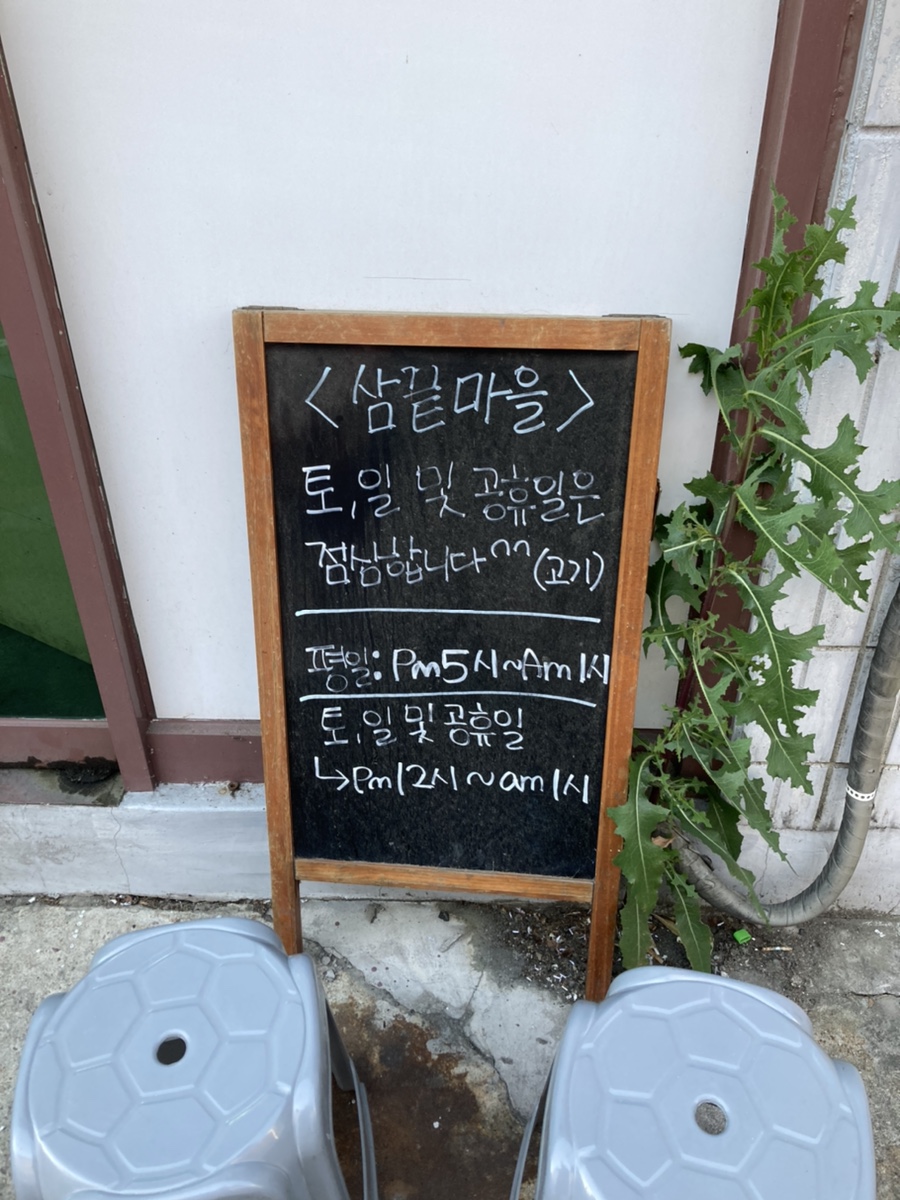 <삼끝마을>
토,일 및 공휴일은
점심합니다^^ (고기)
평일: Pm5시~Am1시
토,일 및 공휴일
↳Pm12시~am1시